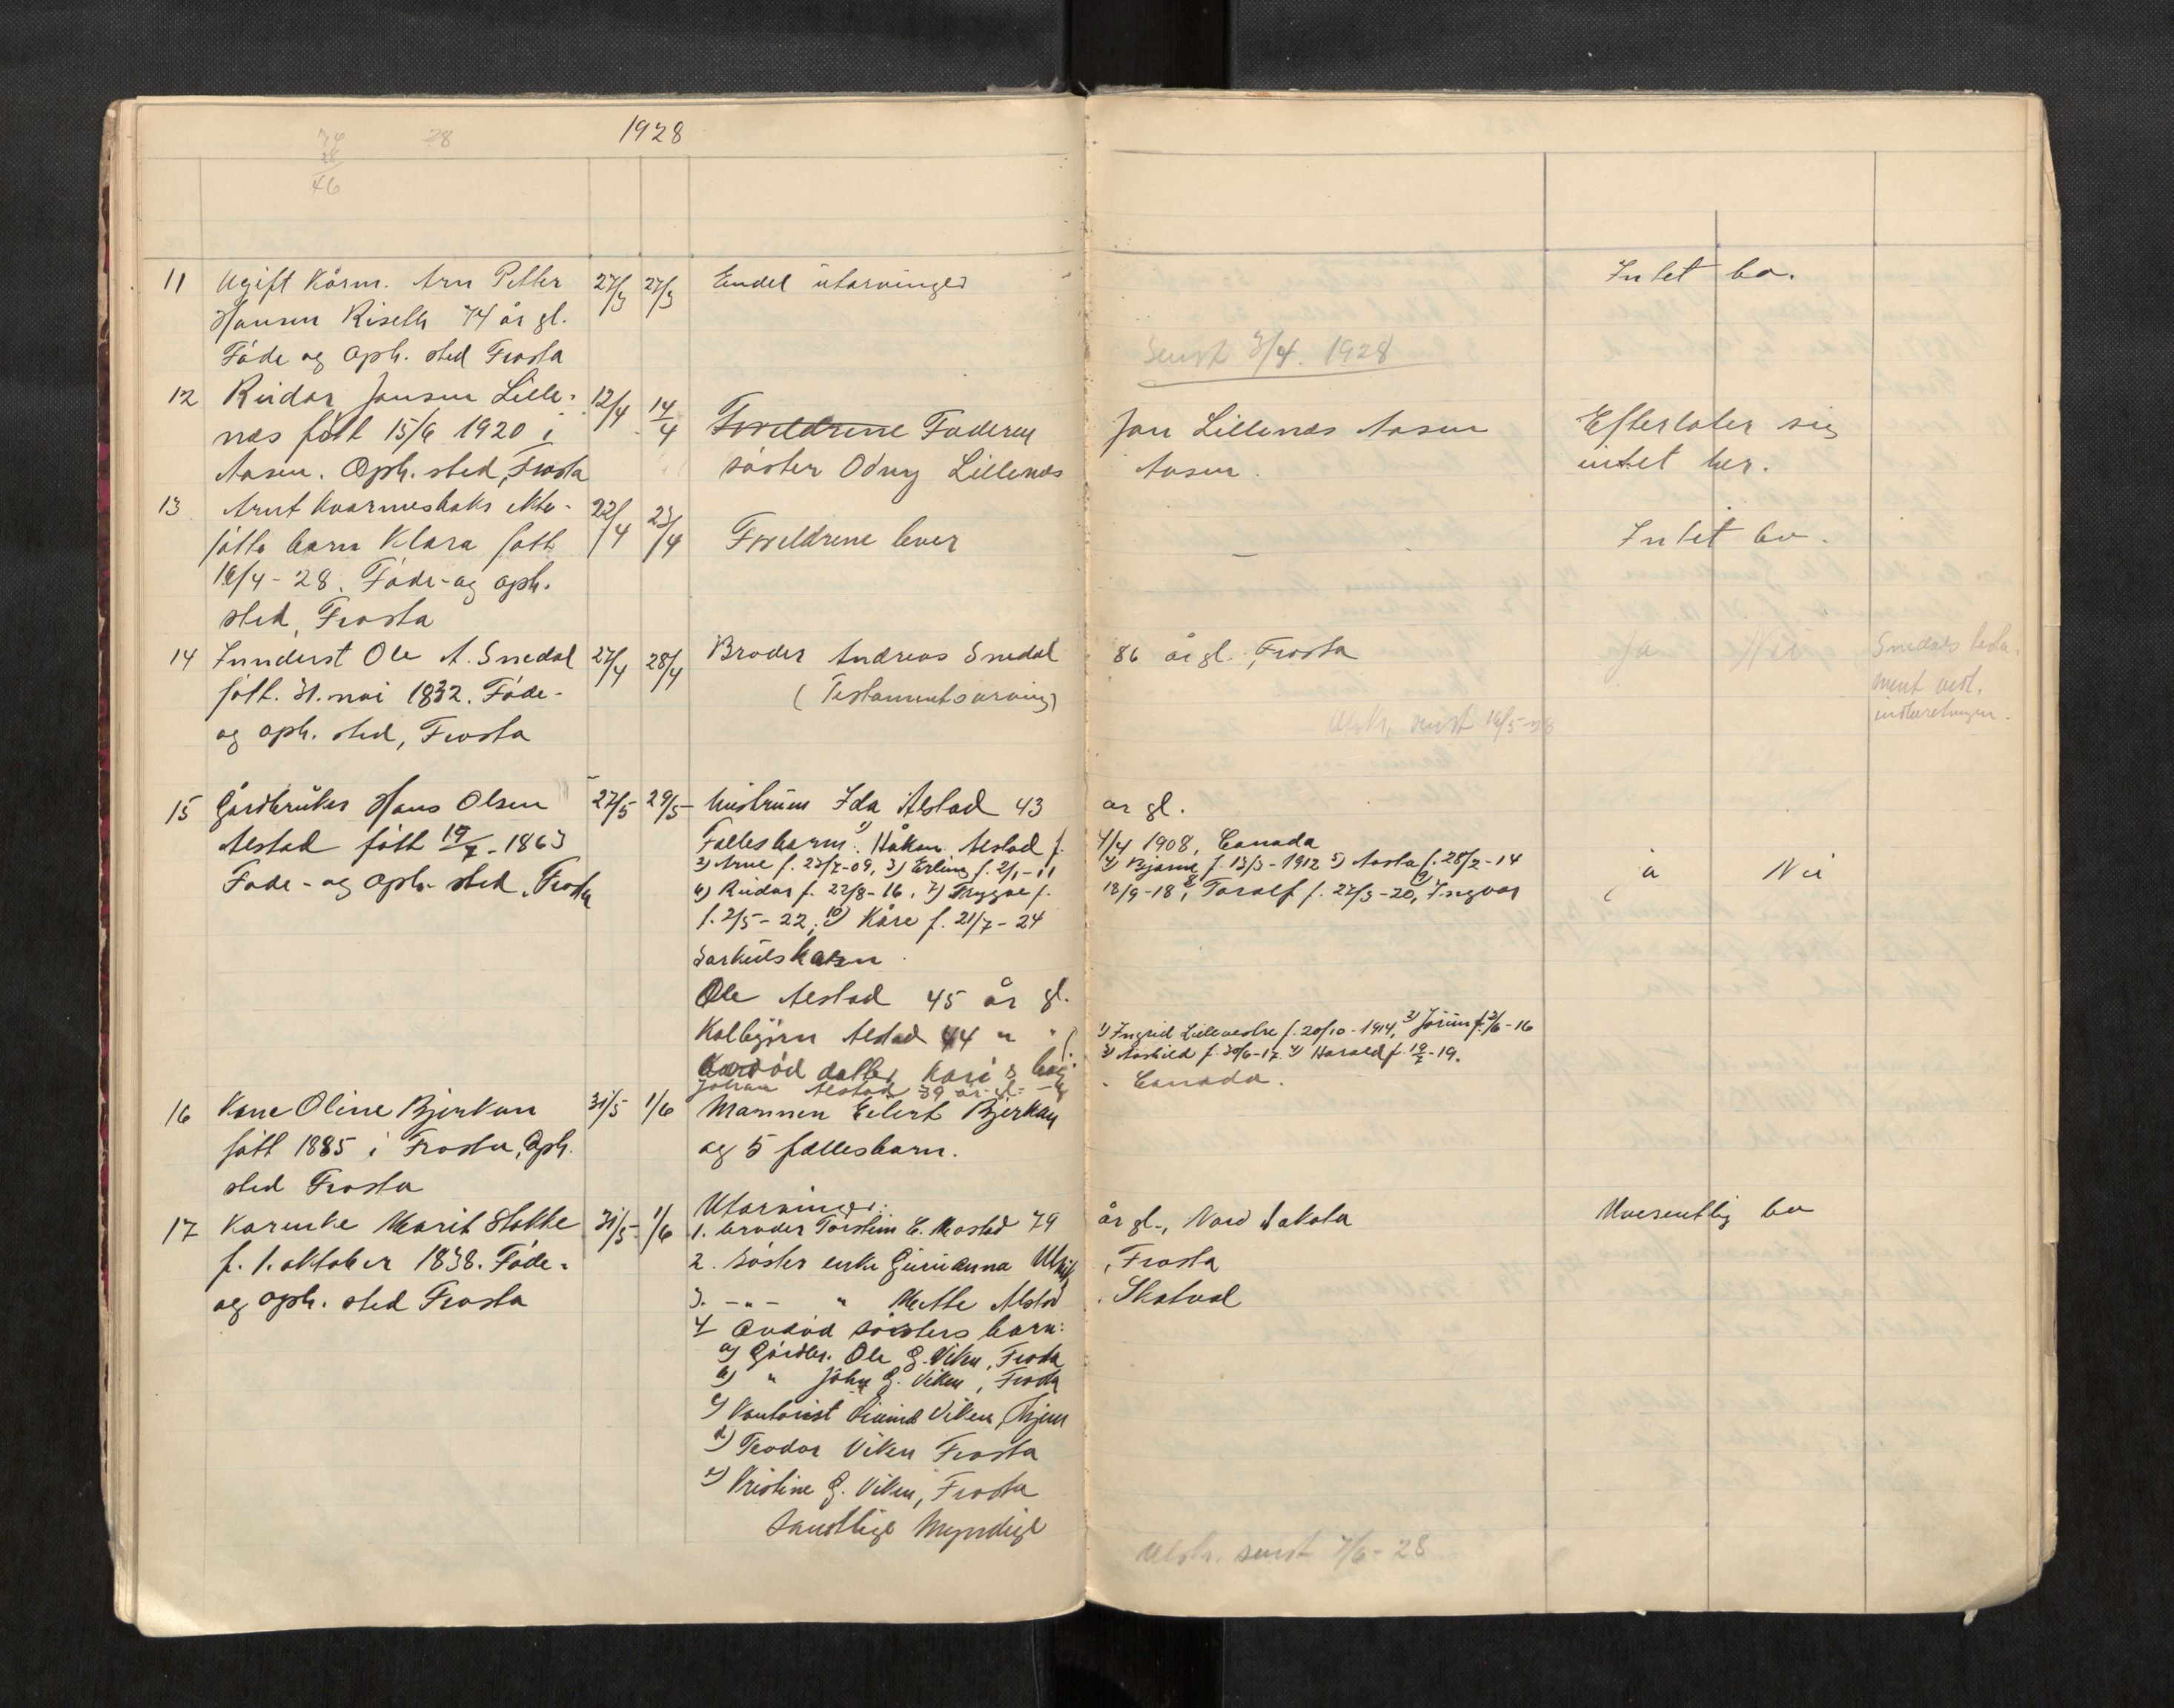 1928
74
28
28
46
11 Ugift Kårm. Arn Petter 27/3 27/3 Endel utarvinger Intet bo.
Hansen Riseth 74 år gl.
Føde og oph. sted Frosta
Sendt 3/4. 1928
12 Reidar Jansen Lille- 12/4 14/4 Foreldrene Faderen Jan Lillenæs Aasen Efterlater sig
næs født 15/6 1920 i søster Odny Lillenæs Aasen. intet her.
Aasen. Oph. sted, Frosta
13 Arnt Kvarmesbaks ekte- 22/4 23/4 Foreldrene lever — Intet bo.
fødte barn Klara født
16/4 - 28. Føde- og oph.
sted, Frosta
14 Innderst Ole A. Snedal 27/4 28/4 Broder Andreas Snedal 86 år gl., Frosta Ja Nei Snedals testa-
født. 31. mai 1832. Føde- (Testamentsarving) ment vedl.
og oph. sted, Frosta Utskr. sendt 16/5-28 indberetningen.
15 Gårdbruker Hans Olsen 27/5 29/5 Hustruen Ida Alstad 43 år gl.
Alstad født 19/7 - 1863 Fællesbarn: 1) Håkon Alstad f. 4/4 1908, Canada
2) Arne f. 23/7-09, 3) Erling f. 2/1-11 4) Bjarne f. 13/3-1912 5) Aasta f. 28/2-14
Føde- og oph. sted, Frosta 6) Reidar f. 22/8-16, 7) Trygve f. 12/9-18, 8) Toralf f. 27/3-20, 9) Ingvar ja Nei
f. 2/5-22, 10) Kåre f. 21/7-24
Særkulsbarn
Ole Alstad 45 år gl.
Kolbjørn Alstad 44 " "
1) Ingrid Lillevestre f. 20/10-1914, 2) Jorun f. 3/6-16
3) Aashild f. 30/6-17. 4) Harald f. 19/7-19.
Avdød datter Kari's
Johan Alstad 39 år gl. - Canada.
16 Kone Oline Bjerkan 31/5 1/6 Mannen Eilert Bjerkan
født 1885 i Frosta, Oph. og 5 fællesbarn.
sted Frosta
17 Karenke Marit Slotte 31/5 1/6 Utarvinger:
1. broder Torstein E. Mostad 79 år gl., Nord Dakota Uvesentlig bo
f. 1. oktober 1838. Føde- 2. søster enke Gurianna Ulvik, Frosta
og oph. sted Frosta 3. - " - " Mette Alstad, Skatval
4 Avdød søsters barn:
a) Gårdbr. Ole G. Viken, Frosta
b) " John G. Viken, Frosta
c) Kontorist Eivind Viken,
d) Teodor Viken Frosta
e) Kristine G. Viken, Frosta
samtlige myndige
Utskr. sendt 7/6-28